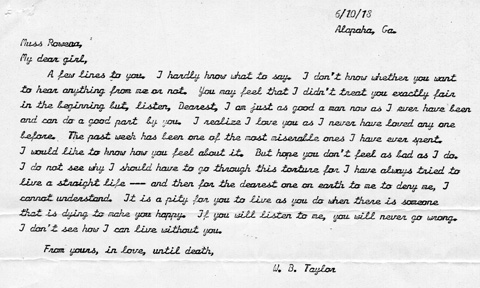 6/10/18
Alapaha, Ga.
Miss Rowena,
My dear girl,
A few lines to you. I hardly know what to say. I don't know whether you want
to hear anything from me or not. You may feel that I didn't treat you exactly fair
in the beginning but, listen, Dearest, I am just as good a man now as I ever have been
and can do a good part by you. I realize I love you as I never have loved any one
before. The past week has been one of the most miserable ones I have ever spent.
I would like to know how you feel about it. But hope you don't feel as bad as I do.
I do not see why I should have to go through this torture for I have always tried to
live a straight life --- and then for the dearest one on earth to me to deny me, I
cannot understand. It is a pity for you to live as you do when there is someone
that is dying to make you happy. If you will listen to me, you will never go wrong.
I don't see how I can live without you.
From yours, in love, until death,
W. B. Taylor